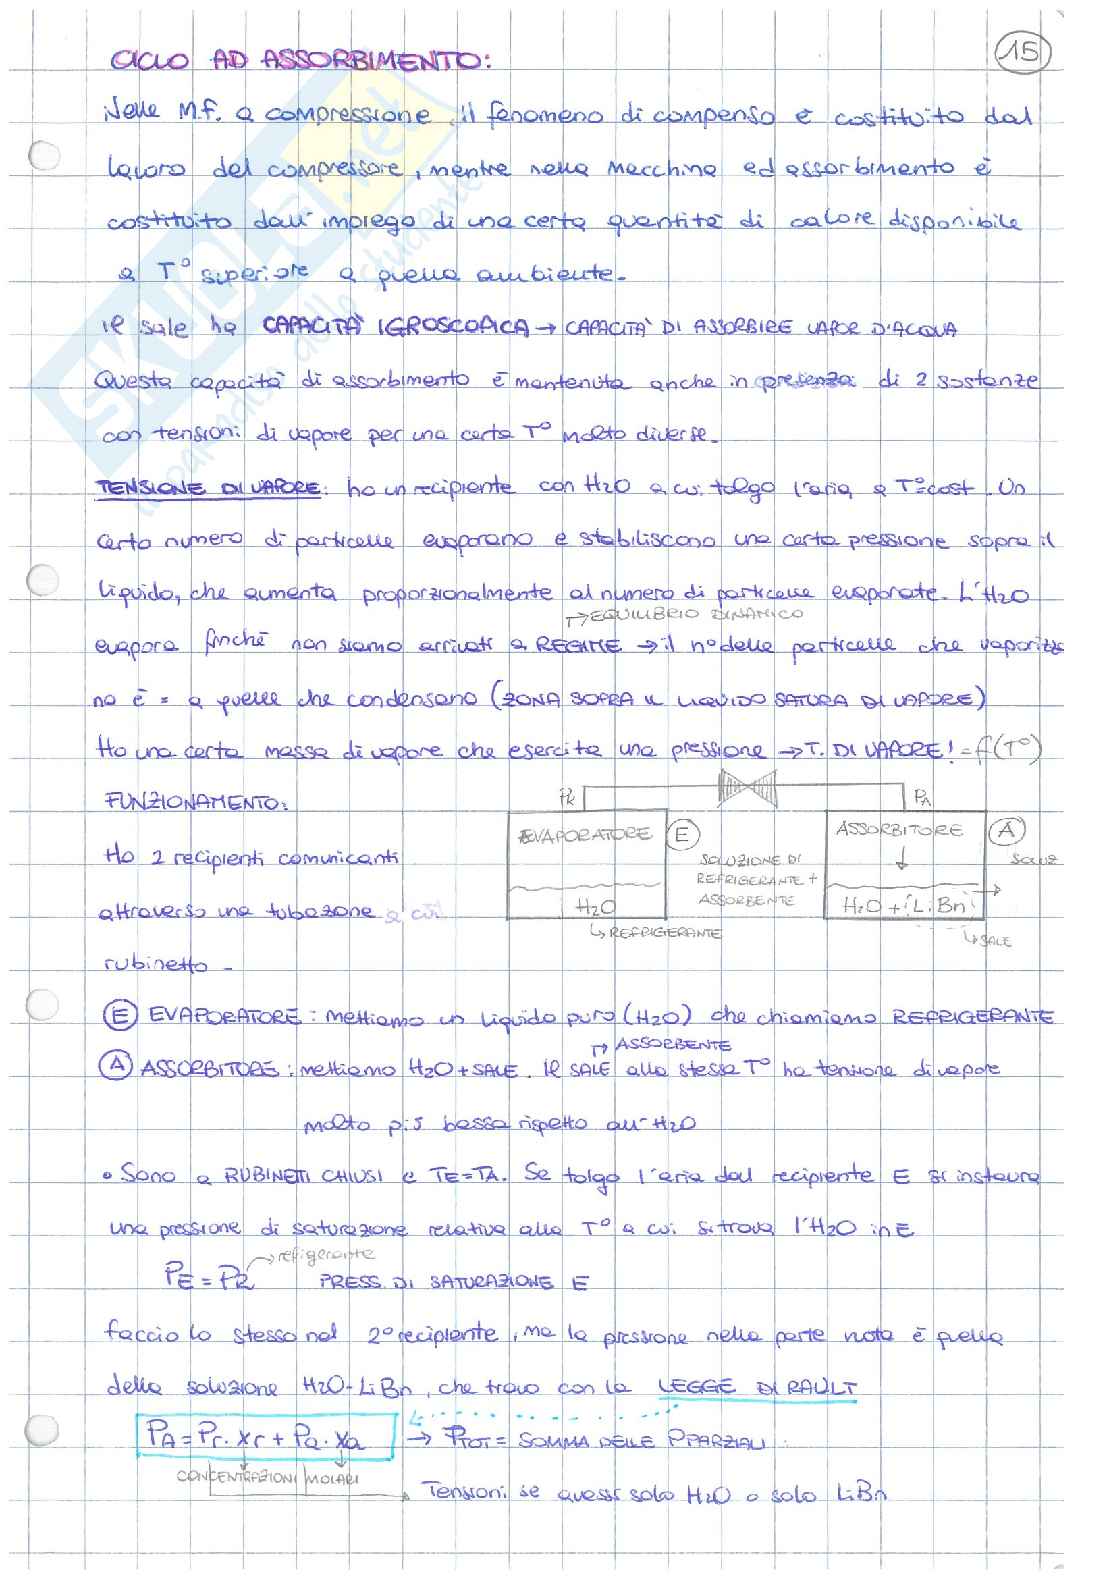 CICLO AD ASSORBIMENTO:
15
Nelle M.F. a compressione, il fenomeno di compenso è costituito dal
lavoro del compressore, mentre nella macchina ad assorbimento è
costituito dall'imprego di una certa quantità di calore disponibile
a T° superiore a quella ambiente.
Il sale ha CAPACITÀ IGROSCOPICA → CAPACITÀ DI ASSORBIRE VAPOR D'ACQUA
Questa capacità di assorbimento è mantenuta anche in presenza di 2 sostanze
con tensioni di vapore per una certa T° molto diverse.
TENSIONE DI VAPORE: ho un recipiente con H2O a cui tolgo l'aria a T°=cost. Un
certo numero di particelle evaporano e stabiliscono una certa pressione sopra il
liquido, che aumenta proporzionalmente al numero di particelle evaporate. L'H2O
→ EQUILIBRIO DINAMICO
evapora finchè non siamo arrivati a REGIME → il n° delle particelle che vaporizza
no è = a quelle che condensano (ZONA SOPRA IL LIQUIDO SATURA DI VAPORE)
Ho una certa massa di vapore che esercita una pressione → T. DI VAPORE! = f(T°)
FUNZIONAMENTO:
PR
PA
EVAPORATORE
E
ASSORBITORE
A
Ho 2 recipienti comunicanti
SOLUZIONE DI
REFRIGERANTE +
ASSORBENTE
H2O
H2O + LiBn
→ REFRIGERANTE
→ SALE
attraverso una tubazione a cui
rubinetto -
E EVAPORATORE: mettiamo un liquido puro (H2O) che chiamiamo REFRIGERANTE
→ ASSORBENTE
A ASSORBITORE: mettiamo H2O + SALE. Il SALE alla stessa T° ha tensione di vapore
molto più bassa rispetto all'H2O
• Sono a RUBINETTI CHIUSI e TE=TA. Se tolgo l'aria dal recipiente E si instaura
una pressione di saturazione relativa alla T° a cui si trova l'H2O in E
→ refigerante
PE = PR PRESS. DI SATURAZIONE E
faccio lo stesso nel 2° recipiente, ma la pressione nella parte nota è quella
della soluzione H2O-LiBn, che trovo con la LEGGE DI RAULT
PA = Pr · Xr + Pa · Xa → PTOT = SOMMA DELLE PPARZIALI
CONCENTRAZIONI MOLARI
→ Tensioni se avessi solo H2O o solo LiBn
SKUOLA.net